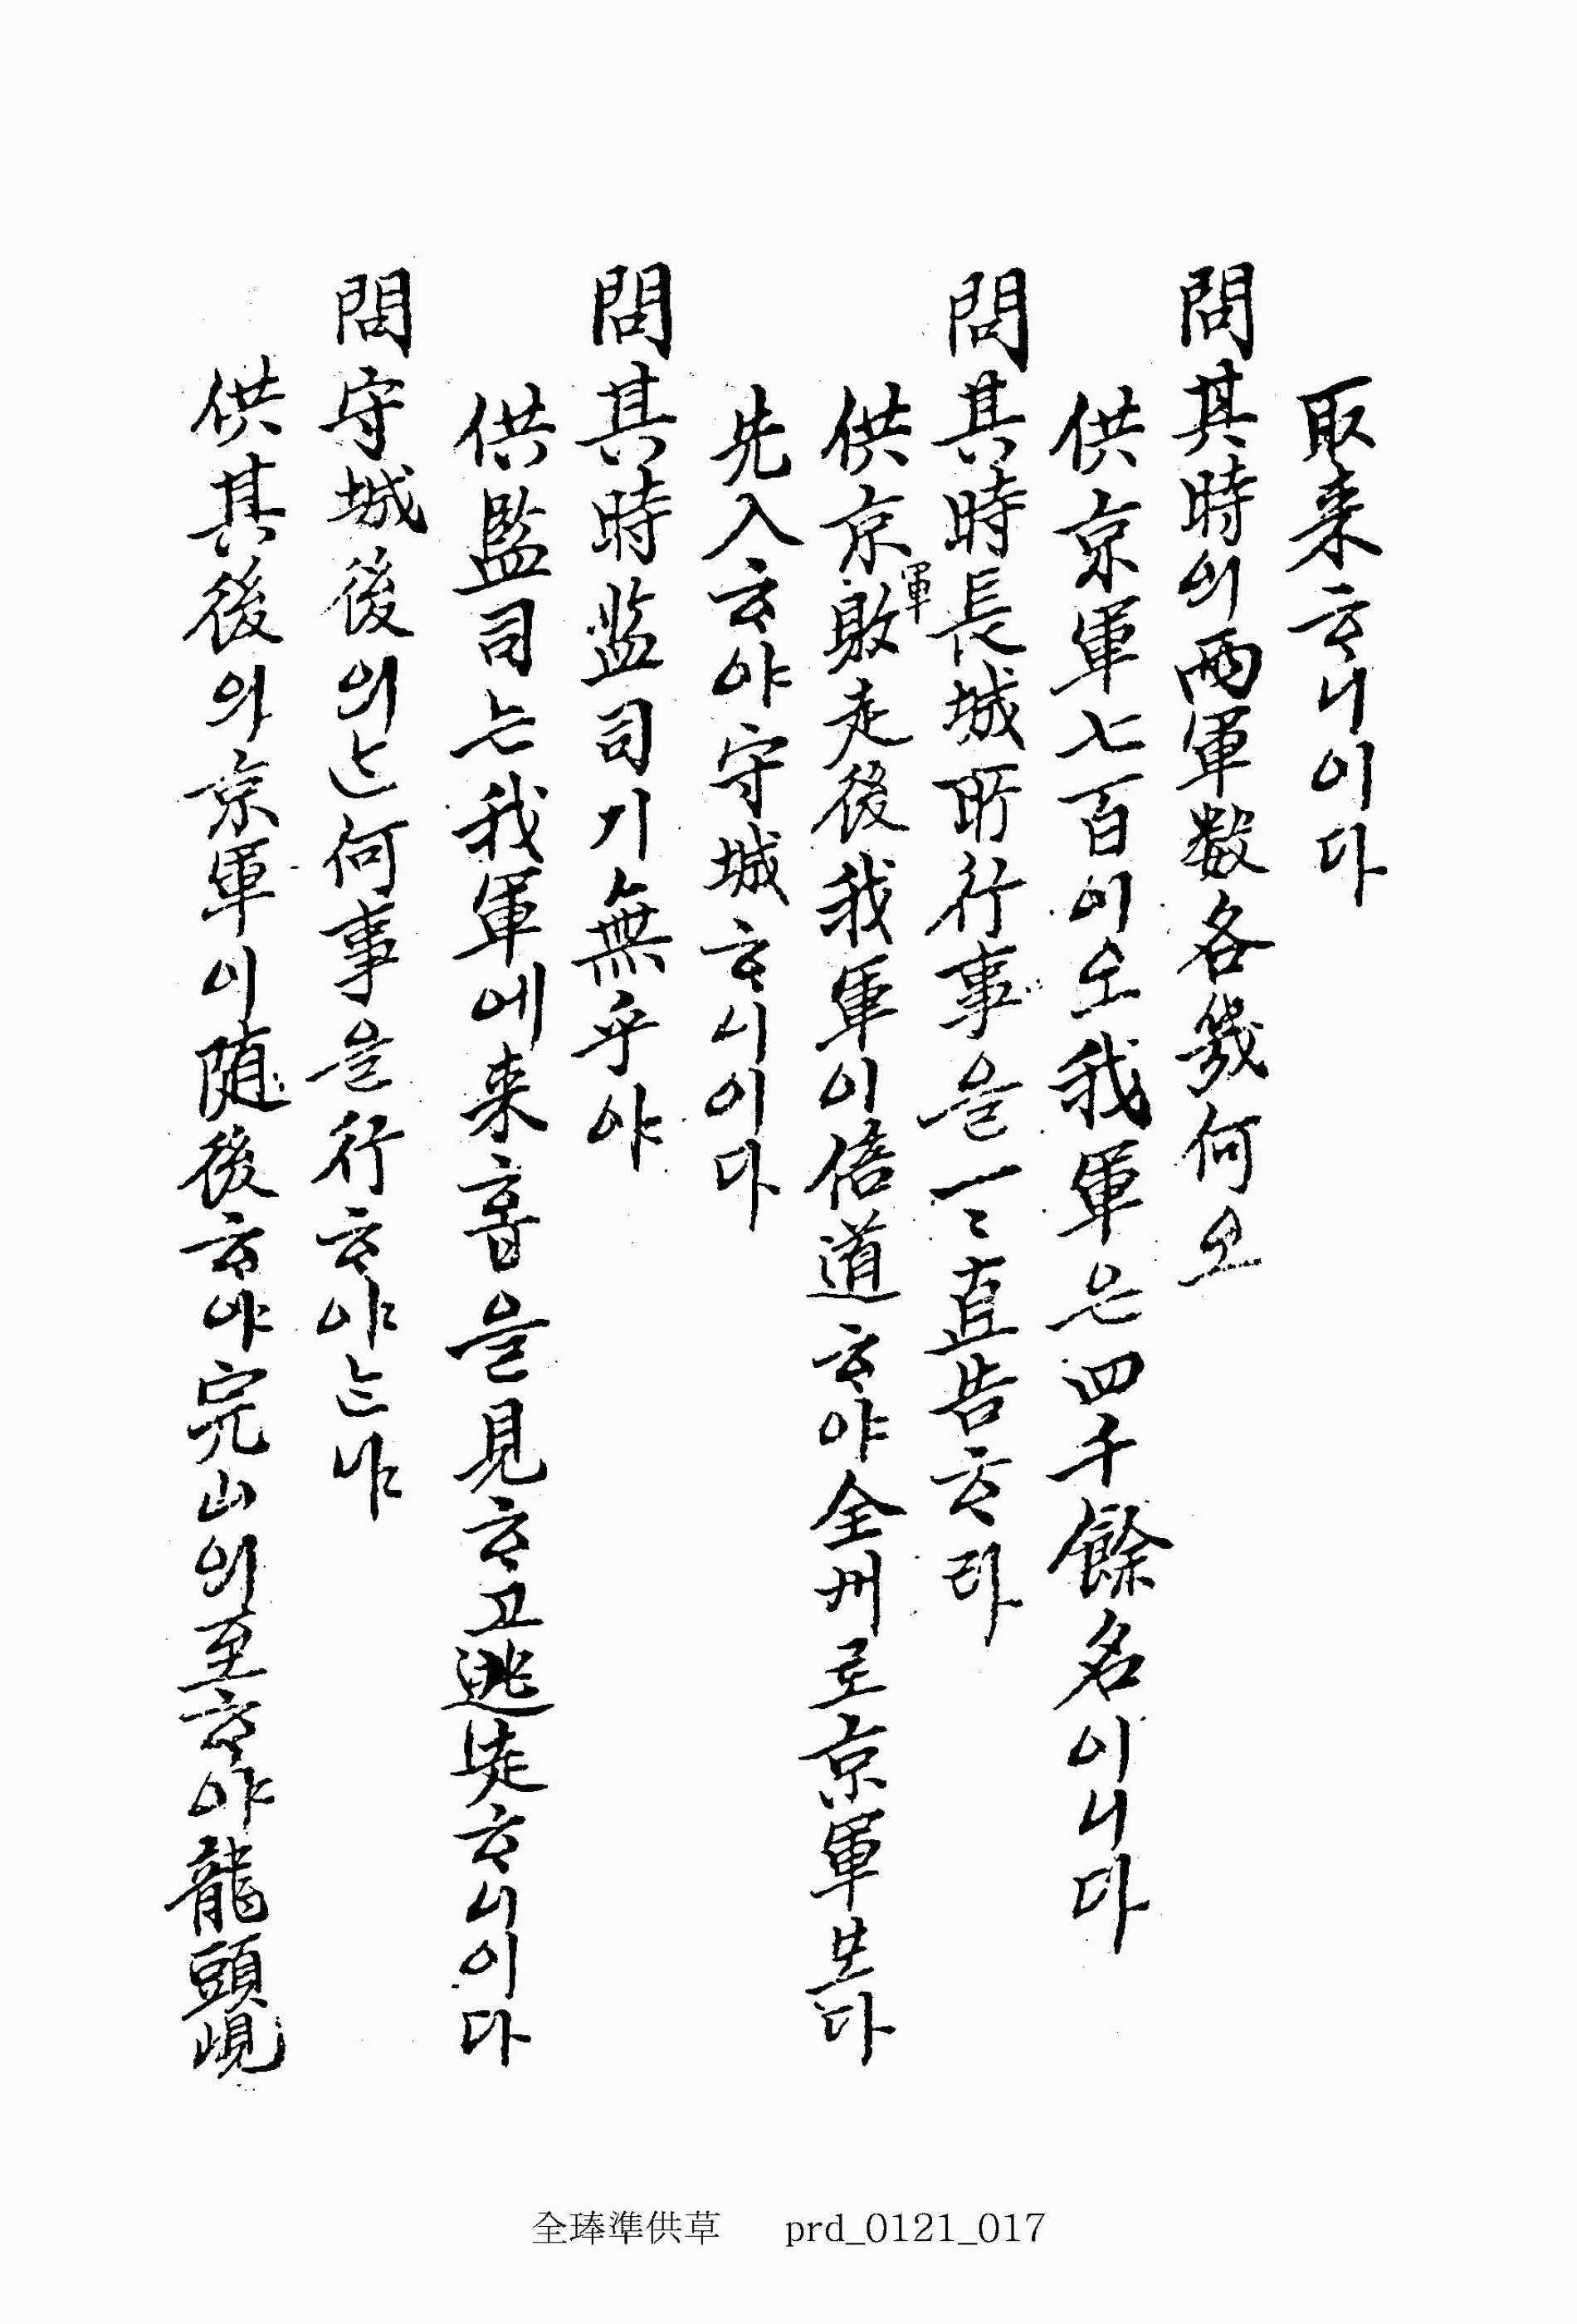 取来ᄒᆞ니이다
問其時의兩軍数各幾何오
供京軍七百이오我軍은四千餘名이니다
問其時長城所行事을一〻直告ᄒᆞ라
供京軍敗走後我軍이倍道ᄒᆞ야全州로京軍보다
先入ᄒᆞ야守城ᄒᆞ니이다
問其時监司가無乎야
供監司는我軍에来音을見ᄒᆞ고逃走ᄒᆞ니이다
問守城後의ᄂᆞᆫ何事을行ᄒᆞ야ᄂᆞ냐
供其後의京軍이随後ᄒᆞ야完山의至ᄒᆞ야龍頭峴
全琫準供草 prd_0121_017